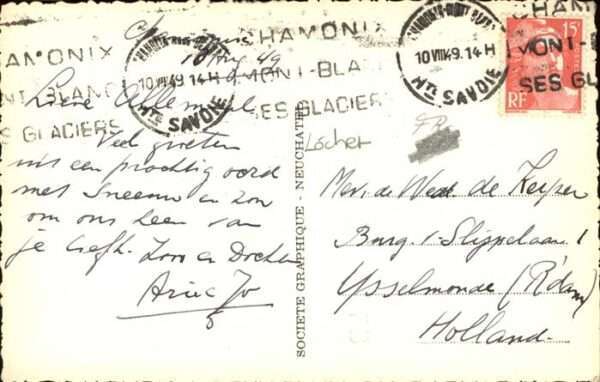 Chamonix
10 Aug 49
CHAMONIX
MONT-BLANC
SES GLACIERS
CHAMONIX-MONT-BLANC
10 VIII 49. 14 H
HTE SAVOIE
CHAMONIX
MONT-BLANC
SES GLACIERS
CHAMONIX-MONT-BLANC
10 VIII 49. 14 H
HTE SAVOIE
CHAMONIX
MONT-
SES GL
15F
RF
Lieve Allemaal
Veel groeten
uit een prachtig oord
met Sneeuw en zon
om ons heen van
je liefh. Zoon en Dochter
Arie Jo
SOCIETE GRAPHIQUE - NEUCHATEL
Locher
Mevr. de Wed. de Keyser
Burg. v. Slijpelaan 1
Ysselmonde (R'dam)
Holland